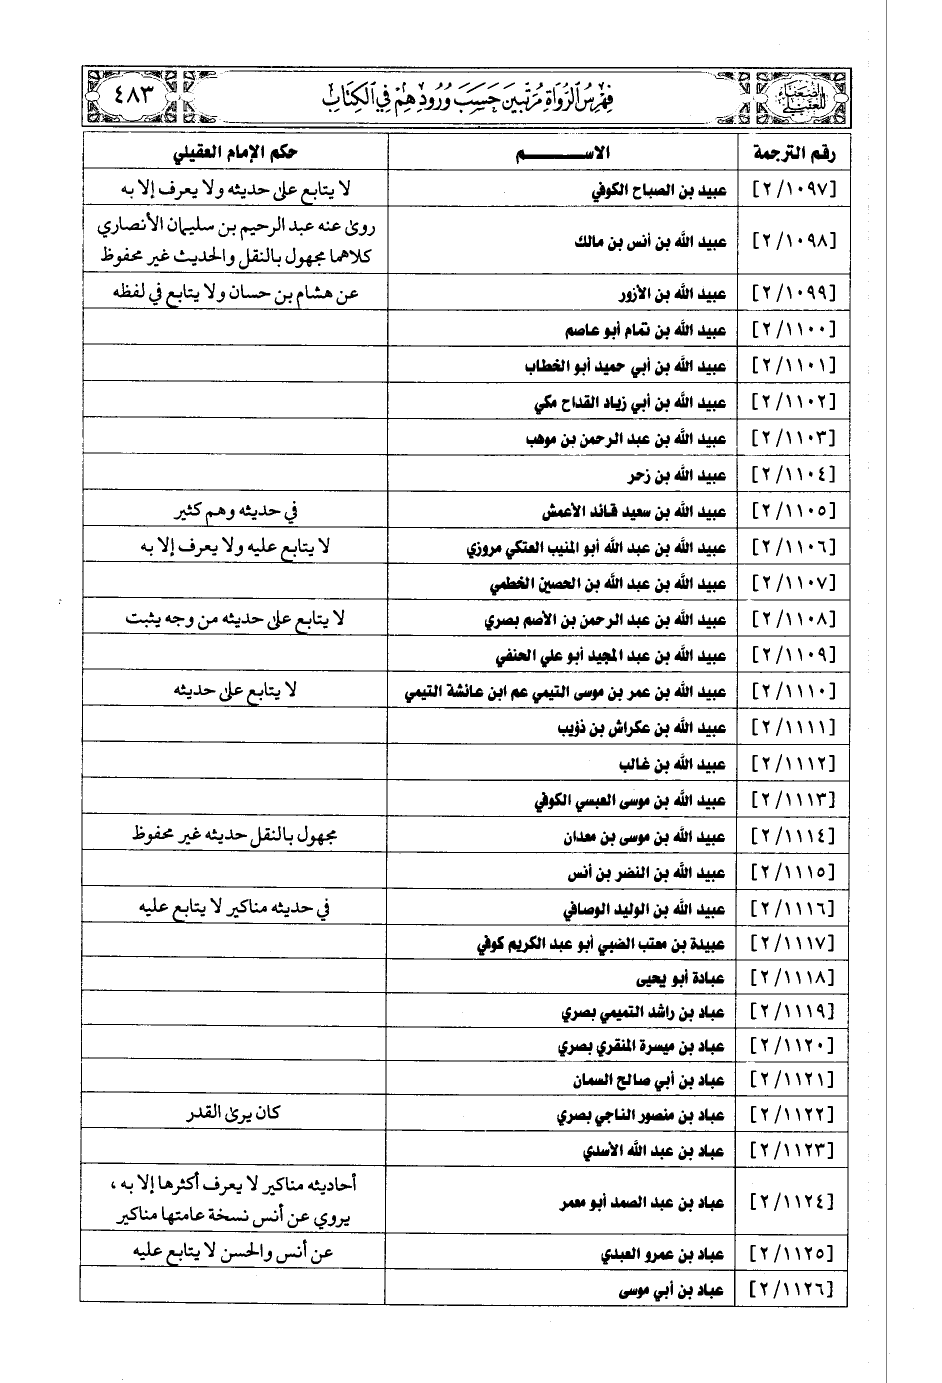 الضعفاء للعقيلي فهرس الرواة مرتبين حسب ورودهم في الكتاب ٤٨٣
رقم الترجمة الاســـــم حكم الإمام العقيلي
[٢/١٠٩٧] عبيد بن الصباح الكوفي لا يتابع على حديثه ولا يعرف إلا به
[٢/١٠٩٨] عبيد الله بن أنس بن مالك روى عنه عبد الرحيم بن سليمان الأنصاري
كلاهما مجهول بالنقل والحديث غير محفوظ
[٢/١٠٩٩] عبيد الله بن الأزور عن هشام بن حسان ولا يتابع في لفظه
[٢/١١٠٠] عبيد الله بن تمام أبو عاصم
[٢/١١٠١] عبيد الله بن أبي حميد أبو الخطاب
[٢/١١٠٢] عبيد الله بن أبي زياد القداح مكي
[٢/١١٠٣] عبيد الله بن عبد الرحمن بن موهب
[٢/١١٠٤] عبيد الله بن زحر
[٢/١١٠٥] عبيد الله بن سعيد قائد الأعمش في حديثه وهم كثير
[٢/١١٠٦] عبيد الله بن عبد الله أبو المنيب العتكي مروزي لا يتابع عليه ولا يعرف إلا به
[٢/١١٠٧] عبيد الله بن عبد الله بن الحصين الخطمي
[٢/١١٠٨] عبيد الله بن عبد الرحمن بن الأصم بصري لا يتابع على حديثه من وجه يثبت
[٢/١١٠٩] عبيد الله بن عبد المجيد أبو علي الحنفي
[٢/١١١٠] عبيد الله بن عمر بن موسى التيمي عم ابن عائشة التيمي لا يتابع على حديثه
[٢/١١١١] عبيد الله بن عكراش بن ذؤيب
[٢/١١١٢] عبيد الله بن غالب
[٢/١١١٣] عبيد الله بن موسى العبسي الكوفي
[٢/١١١٤] عبيد الله بن موسى بن معدان مجهول بالنقل حديثه غير محفوظ
[٢/١١١٥] عبيد الله بن النضر بن أنس
[٢/١١١٦] عبيد الله بن الوليد الوصافي في حديثه مناكير لا يتابع عليه
[٢/١١١٧] عبيدة بن معتب الضبي أبو عبد الكريم كوفي
[٢/١١١٨] عبادة أبو يحيى
[٢/١١١٩] عباد بن راشد التميمي بصري
[٢/١١٢٠] عباد بن ميسرة المنقري بصري
[٢/١١٢١] عباد بن أبي صالح السمان
[٢/١١٢٢] عباد بن منصور الناجي بصري كان يرى القدر
[٢/١١٢٣] عباد بن عبد الله الأسدي
[٢/١١٢٤] عباد بن عبد الصمد أبو معمر أحاديثه مناكير لا يعرف أكثرها إلا به ،
يروي عن أنس نسخة عامتها مناكير
[٢/١١٢٥] عباد بن عمرو العبدي عن أنس والحسن لا يتابع عليه
[٢/١١٢٦] عباد بن أبي موسى